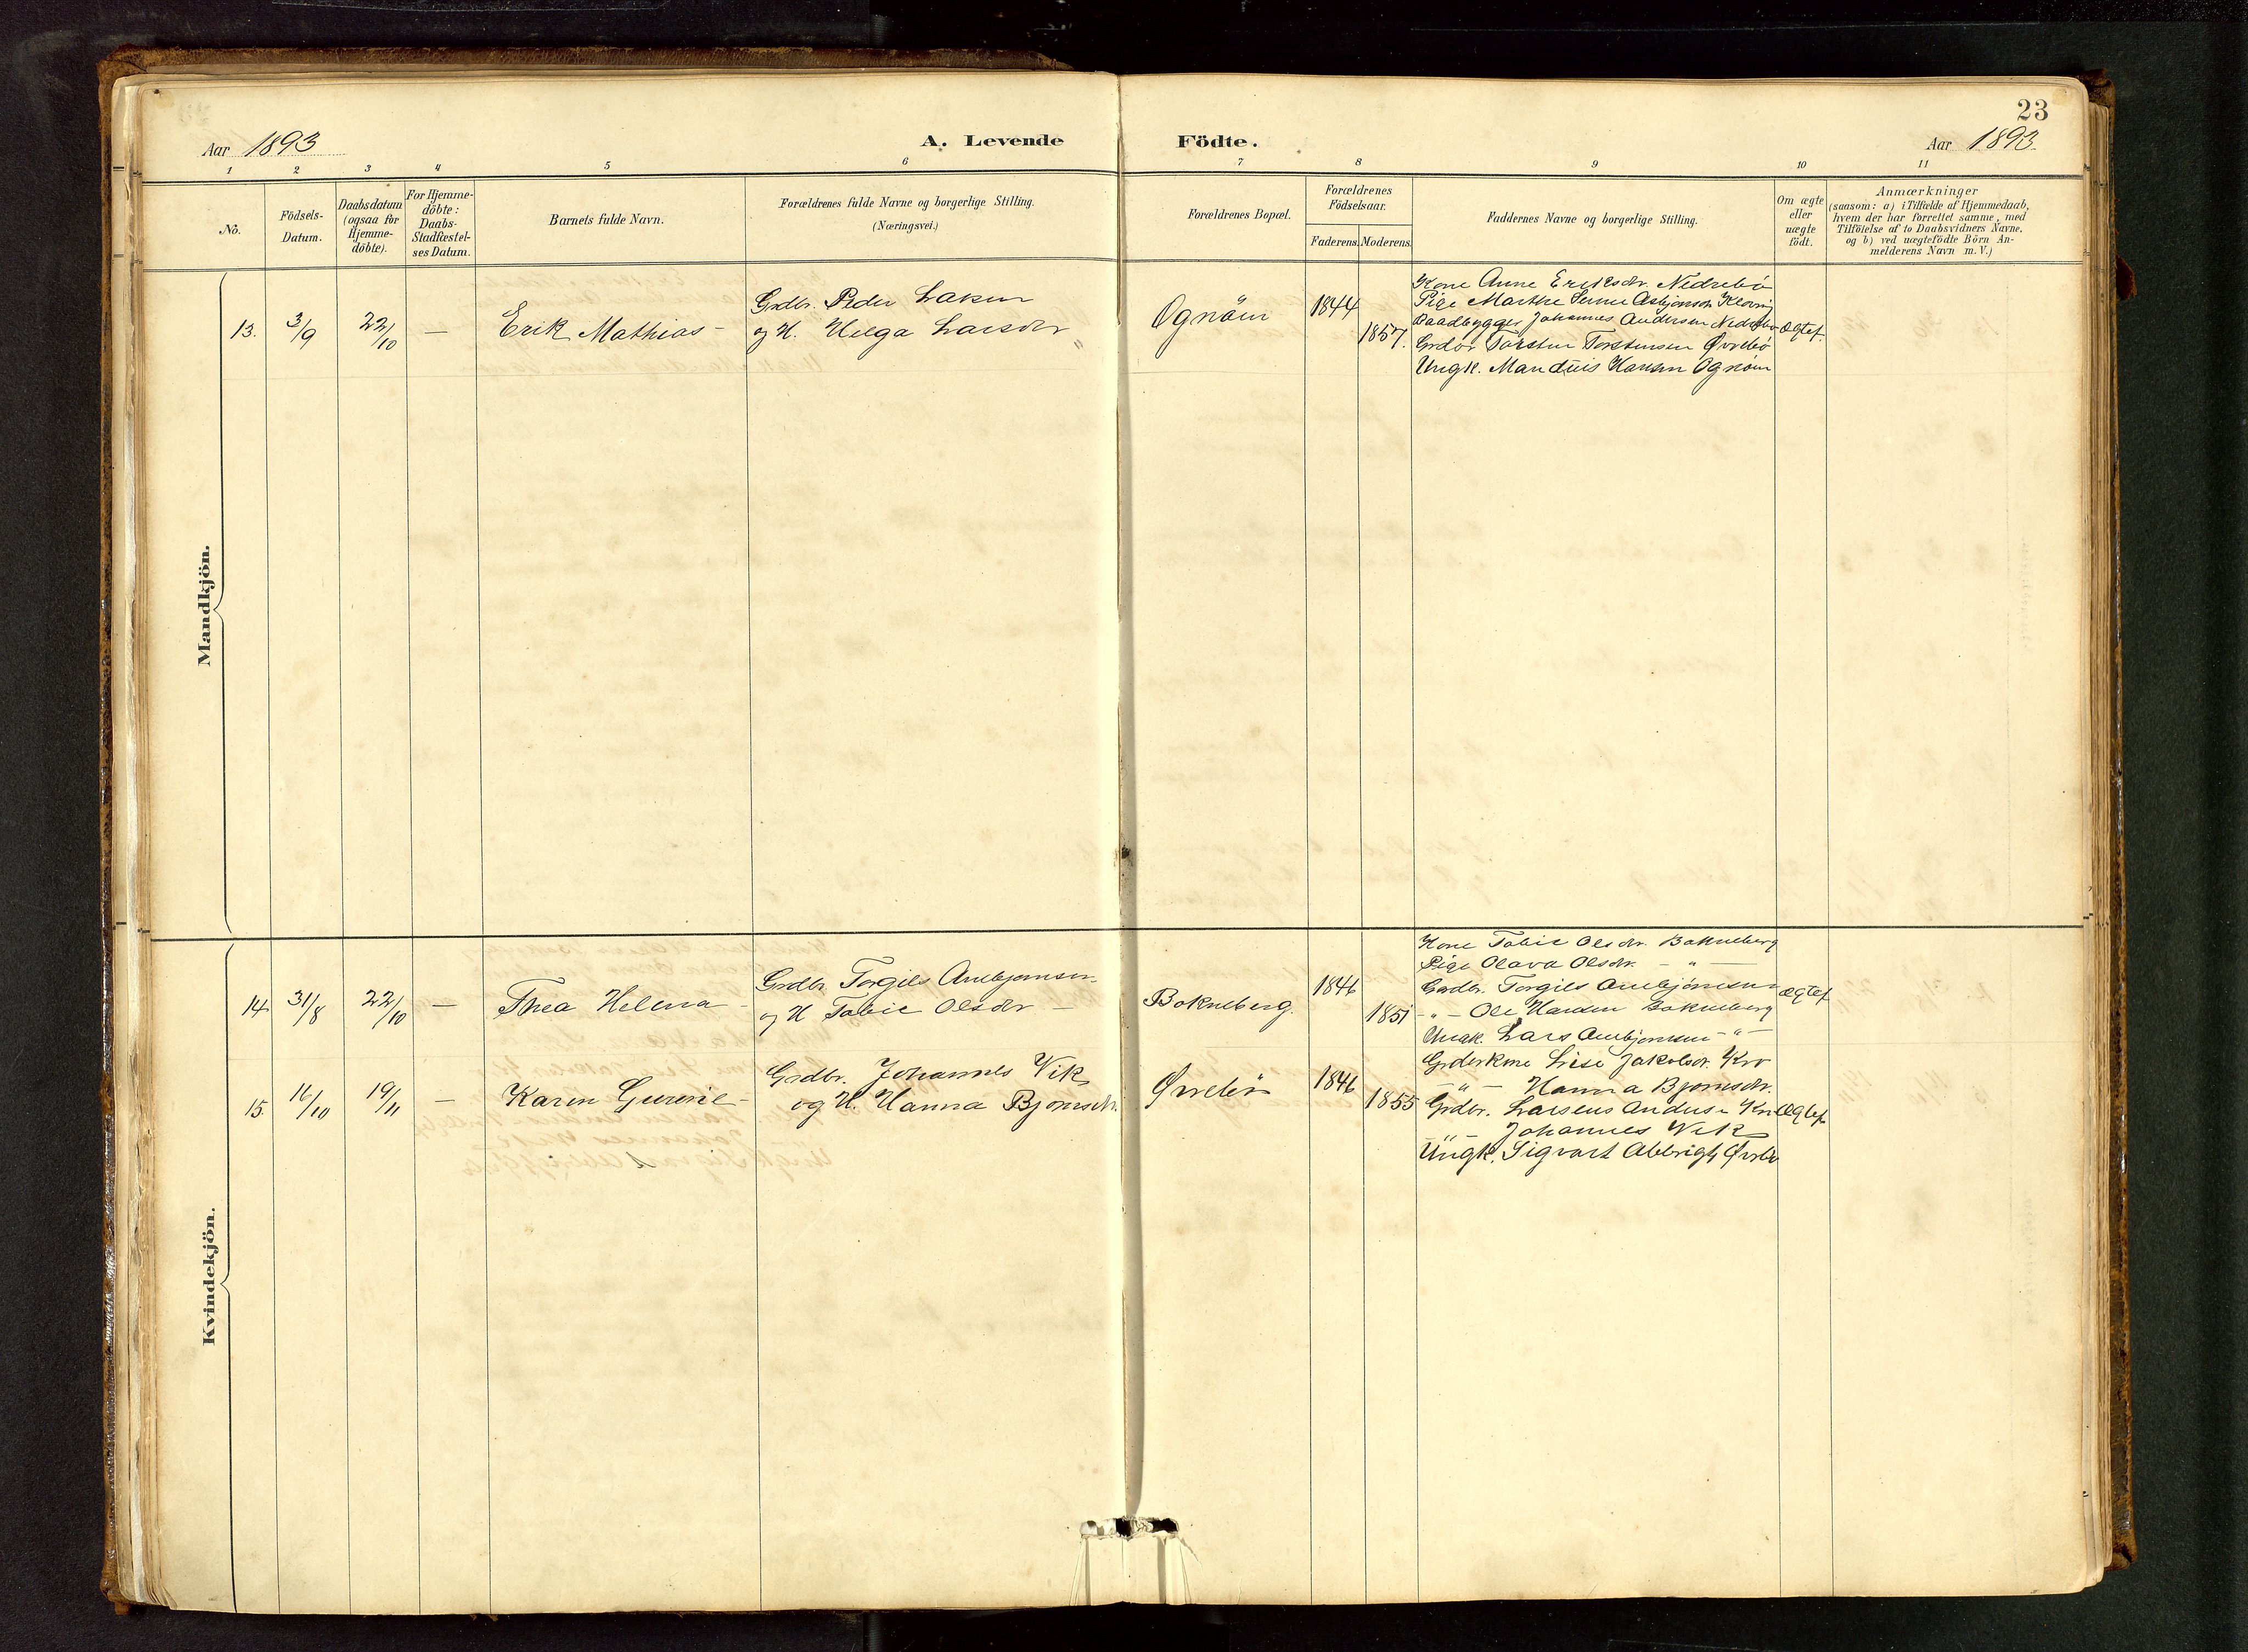 23
Aar 1893
A. Levende
Födte.
Aar 1893.
1 2 3 4 5 6 7 8 9 10 11
No.
Födsels-
Datum.
Daabsdatum
(ogsaa for
Hjemme-
döbte).
For Hjemme-
döbte:
Daabs-
Stadfæstel-
ses Datum.
Barnets fulde Navn.
Forældrenes fulde Navne og borgerlige Stilling.
(Næringsvei.)
Forældrenes Bopæl.
Forældrenes
Födselsaar.
Faderens. Moderens.
Faddernes Navne og borgerlige Stilling.
Om ægte
eller
uægte
födt.
Anmærkninger
(saasom: a) i Tilfælde af Hjemmedaab,
hvem der har forrettet samme, med
Tilföielse af to Daabsvidners Navne,
og b) ved uægtefödte Börn An-
melderens Navn m. V.)
Mandkjön.
13. 3/9 22/10 — Erik Mathias –
Grdbr. Peder
og H. Helga Larsdtr
Ognöm 1844
1857.
Kone Anne Eriksdtr. Nedrebö
Pige Marthe Asbjörnsdr.
Baadbygger Johannes Andersen
Grdbr Torsten Torstensen Øvrebö
Ungk. Hansen Ognöm
Ægtef.
Kvindekjön.
14 31/8 22/10 — Thea Helena –
Grdbr. Torgils
og H Tobie Olsdtr —
Bokneberg. 1846
1851
Kone Tobie Olsdtr. Bokneberg
Pige Olava Olsdtr. – " —
Grdbr. Torgils
– " – Ole Bokneberg
Ungk. Lars – " –
Ægtef
15. 16/10 19/11 — Karen –
Grdbr. Johannes Vik
og H. Hanna Bjornsdtr.
Øvrebö 1846
1855
Lise Jakobsdr.
– " – Hanna Bjornsdtr.
Grdbr.
– " – Johannes Vik
Ungk. Sigvart
Ægtef